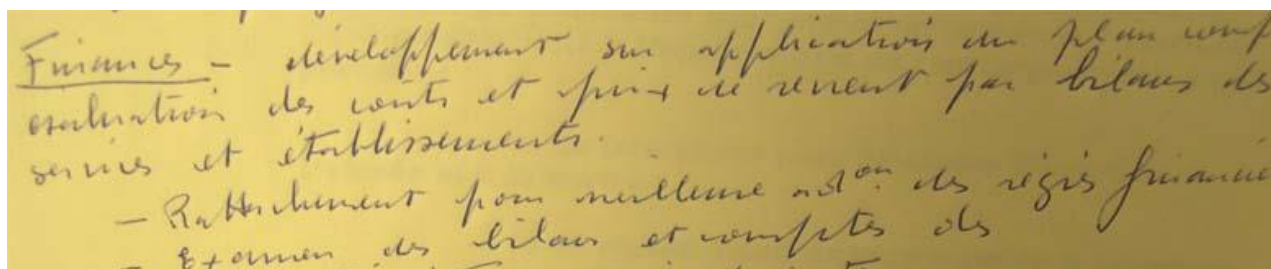 Finances - développement sur application du plan comp
evaluation des couts et prix de revient par bilans des
services et établissements.
- Rattachement pour meilleure des régies financiè
- Examen des bilans et comptes des